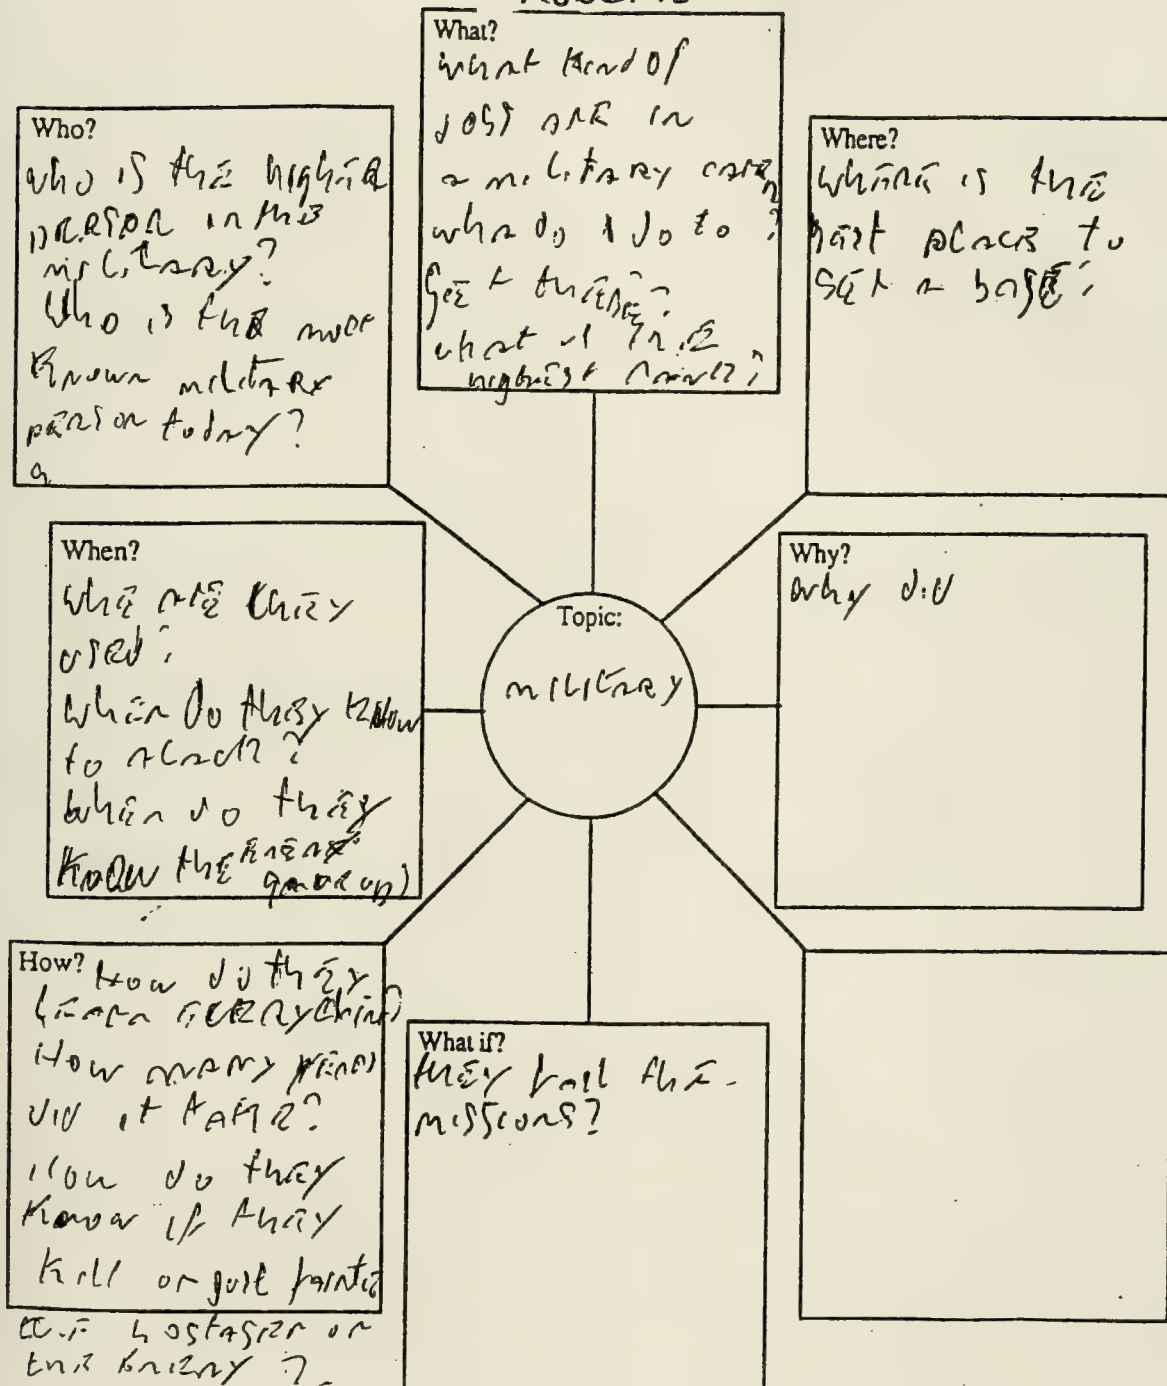 What?
what kind of
jobs are in
a military
what do I do to ?
get
what is the
highest rank?
Who?
who is the higher
person in the
military?
Who is the most
Known military
person today?
Where?
where is the
best places to
set a base?
When?
whe are they
used?
when do they know
to atack?
when do they
know the
Why?
why did
Topic:
military
How? How do they
learn everything?
How many years
did it take?
How do they
Know if they
kill or just
hostager or
the enemy ?
What if?
they fail the
missions?